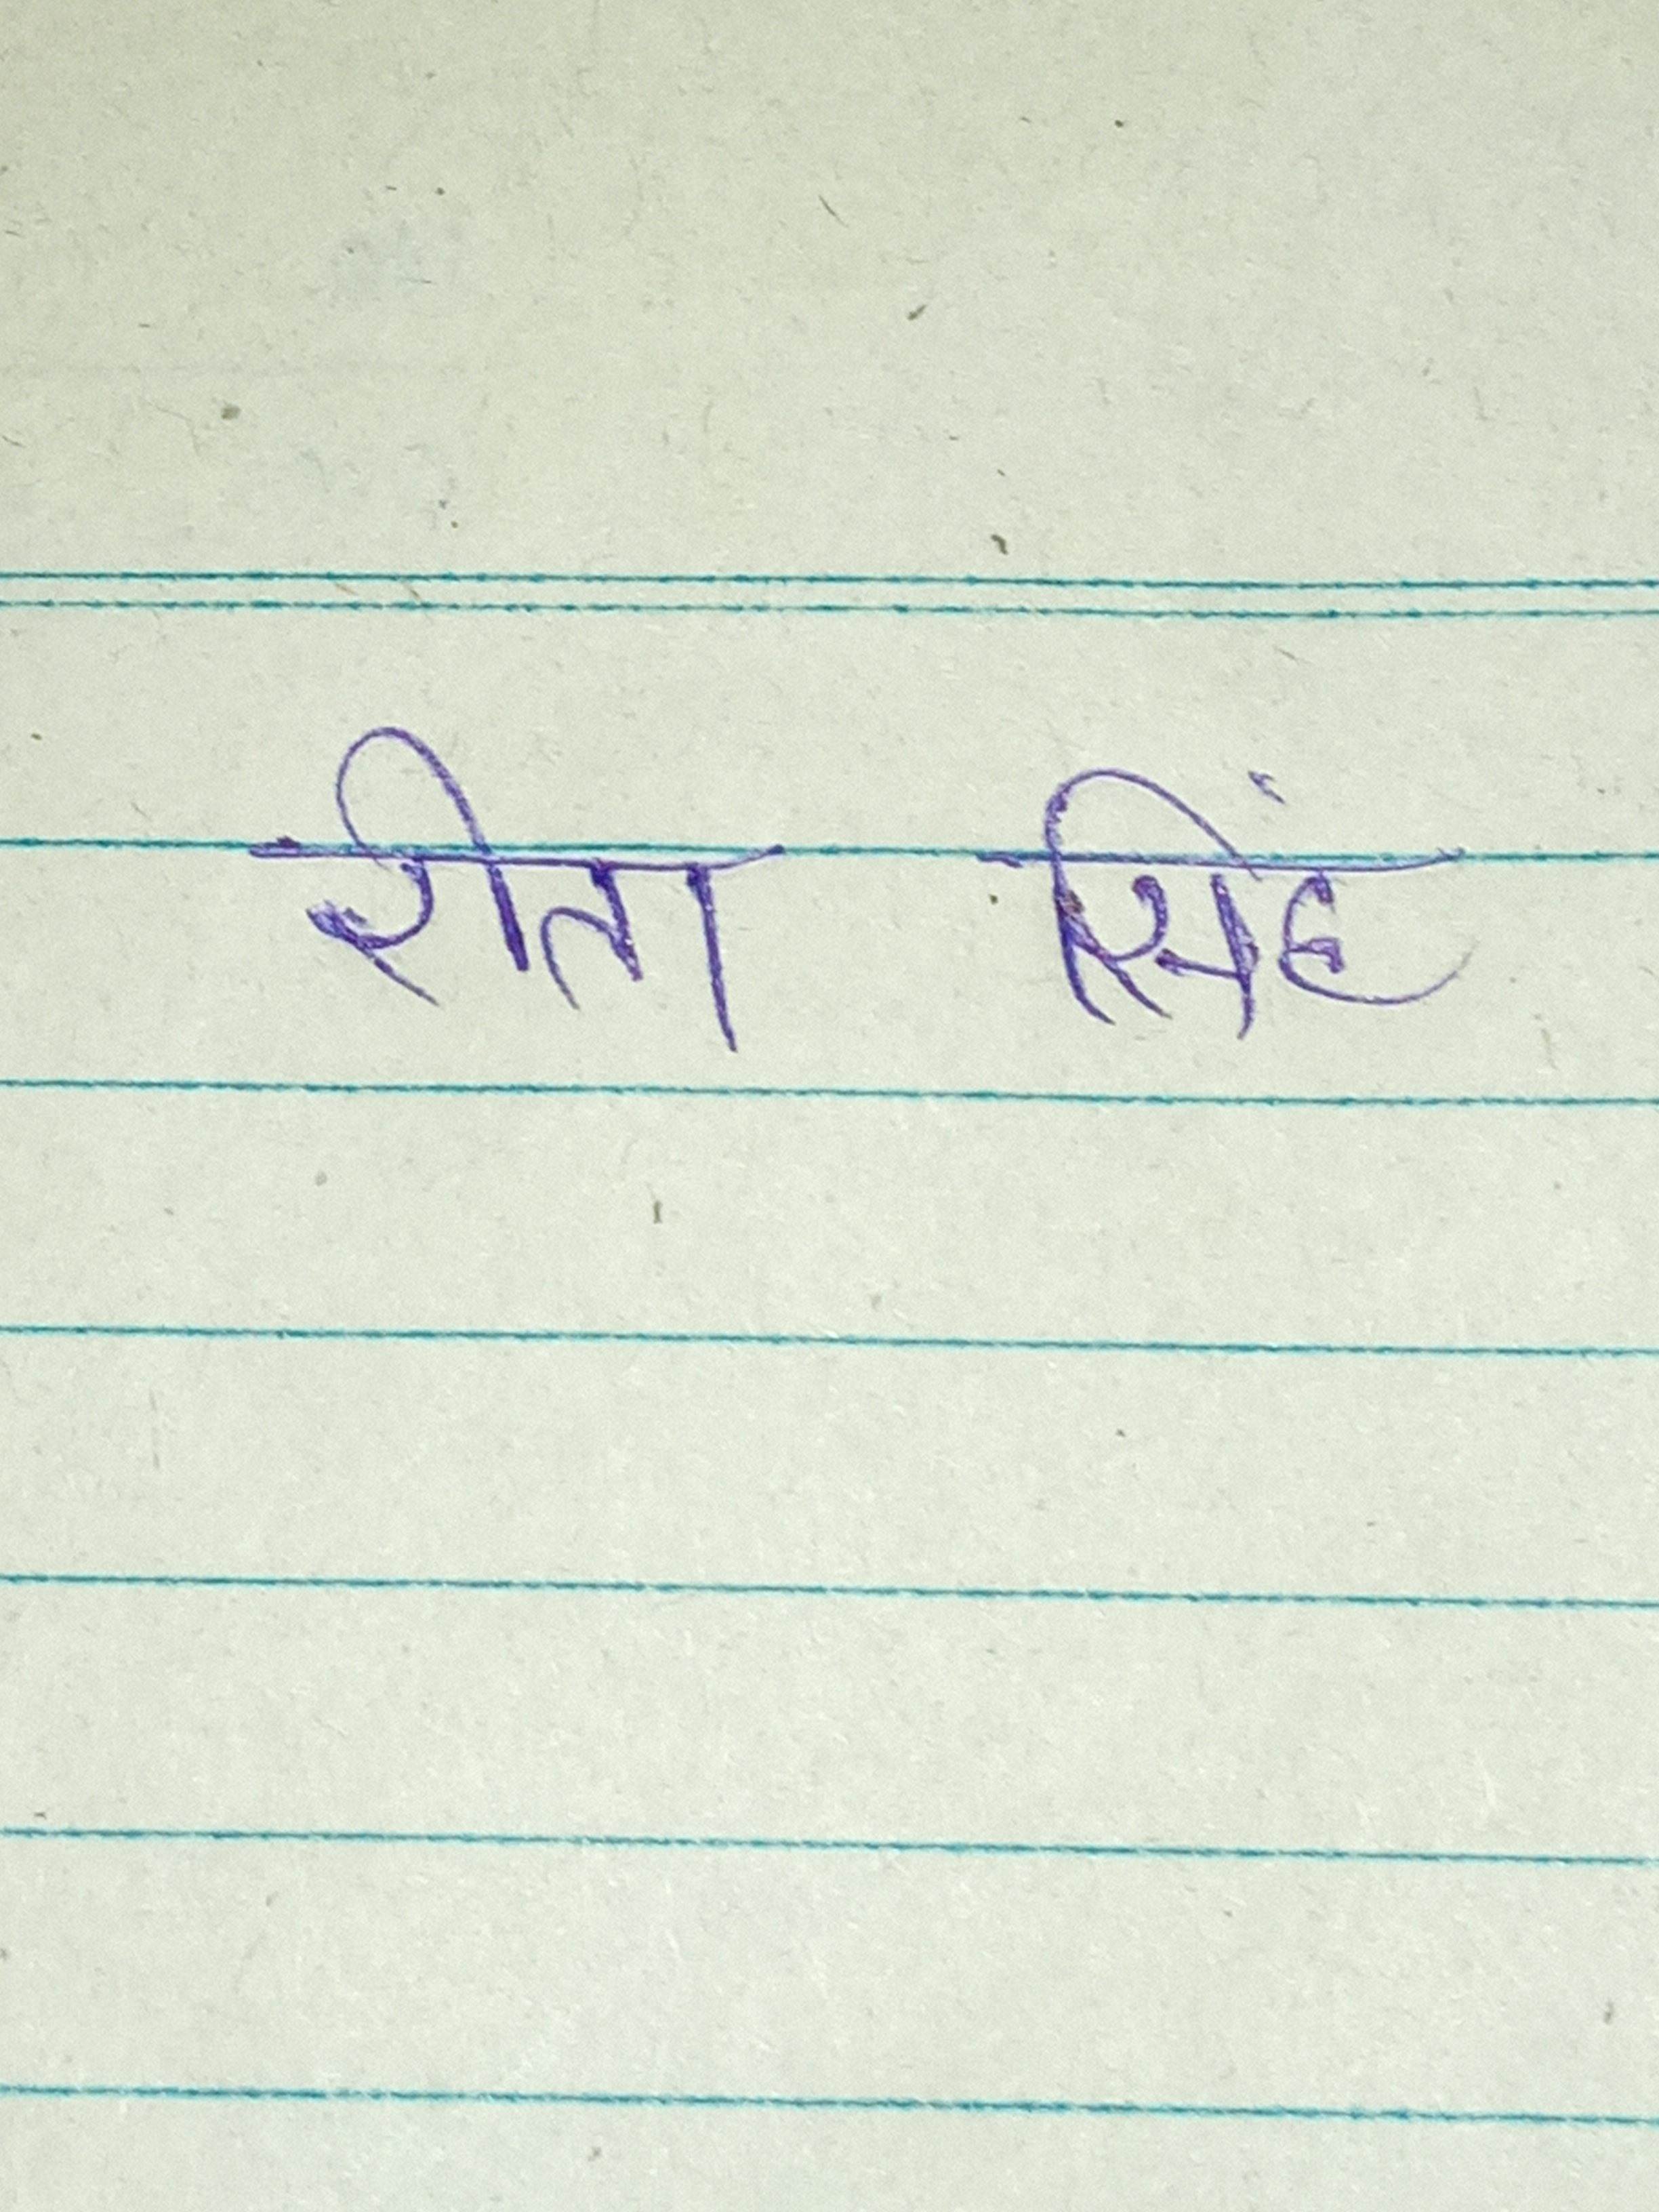 रीता सिंह